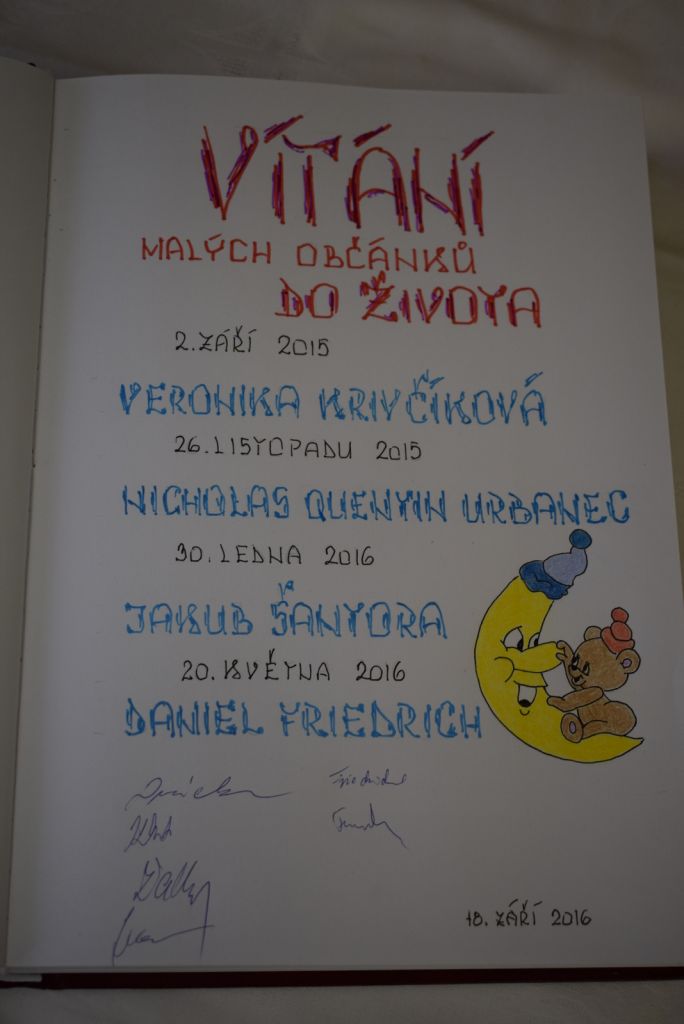 VÍTÁNÍ
MALÝCH OBČÁNKŮ
DO ŽIVOTA
2. ZÁŘÍ 2015
VERONIKA KRIVČÍKOVÁ
26. LISTOPADU 2015
NICHOLAS QUENTIN URBANEC
30. LEDNA 2016
JAKUB ŠANTORA
20. KVĚTNA 2016
DANIEL FRIEDRICH
18. ZÁŘÍ 2016